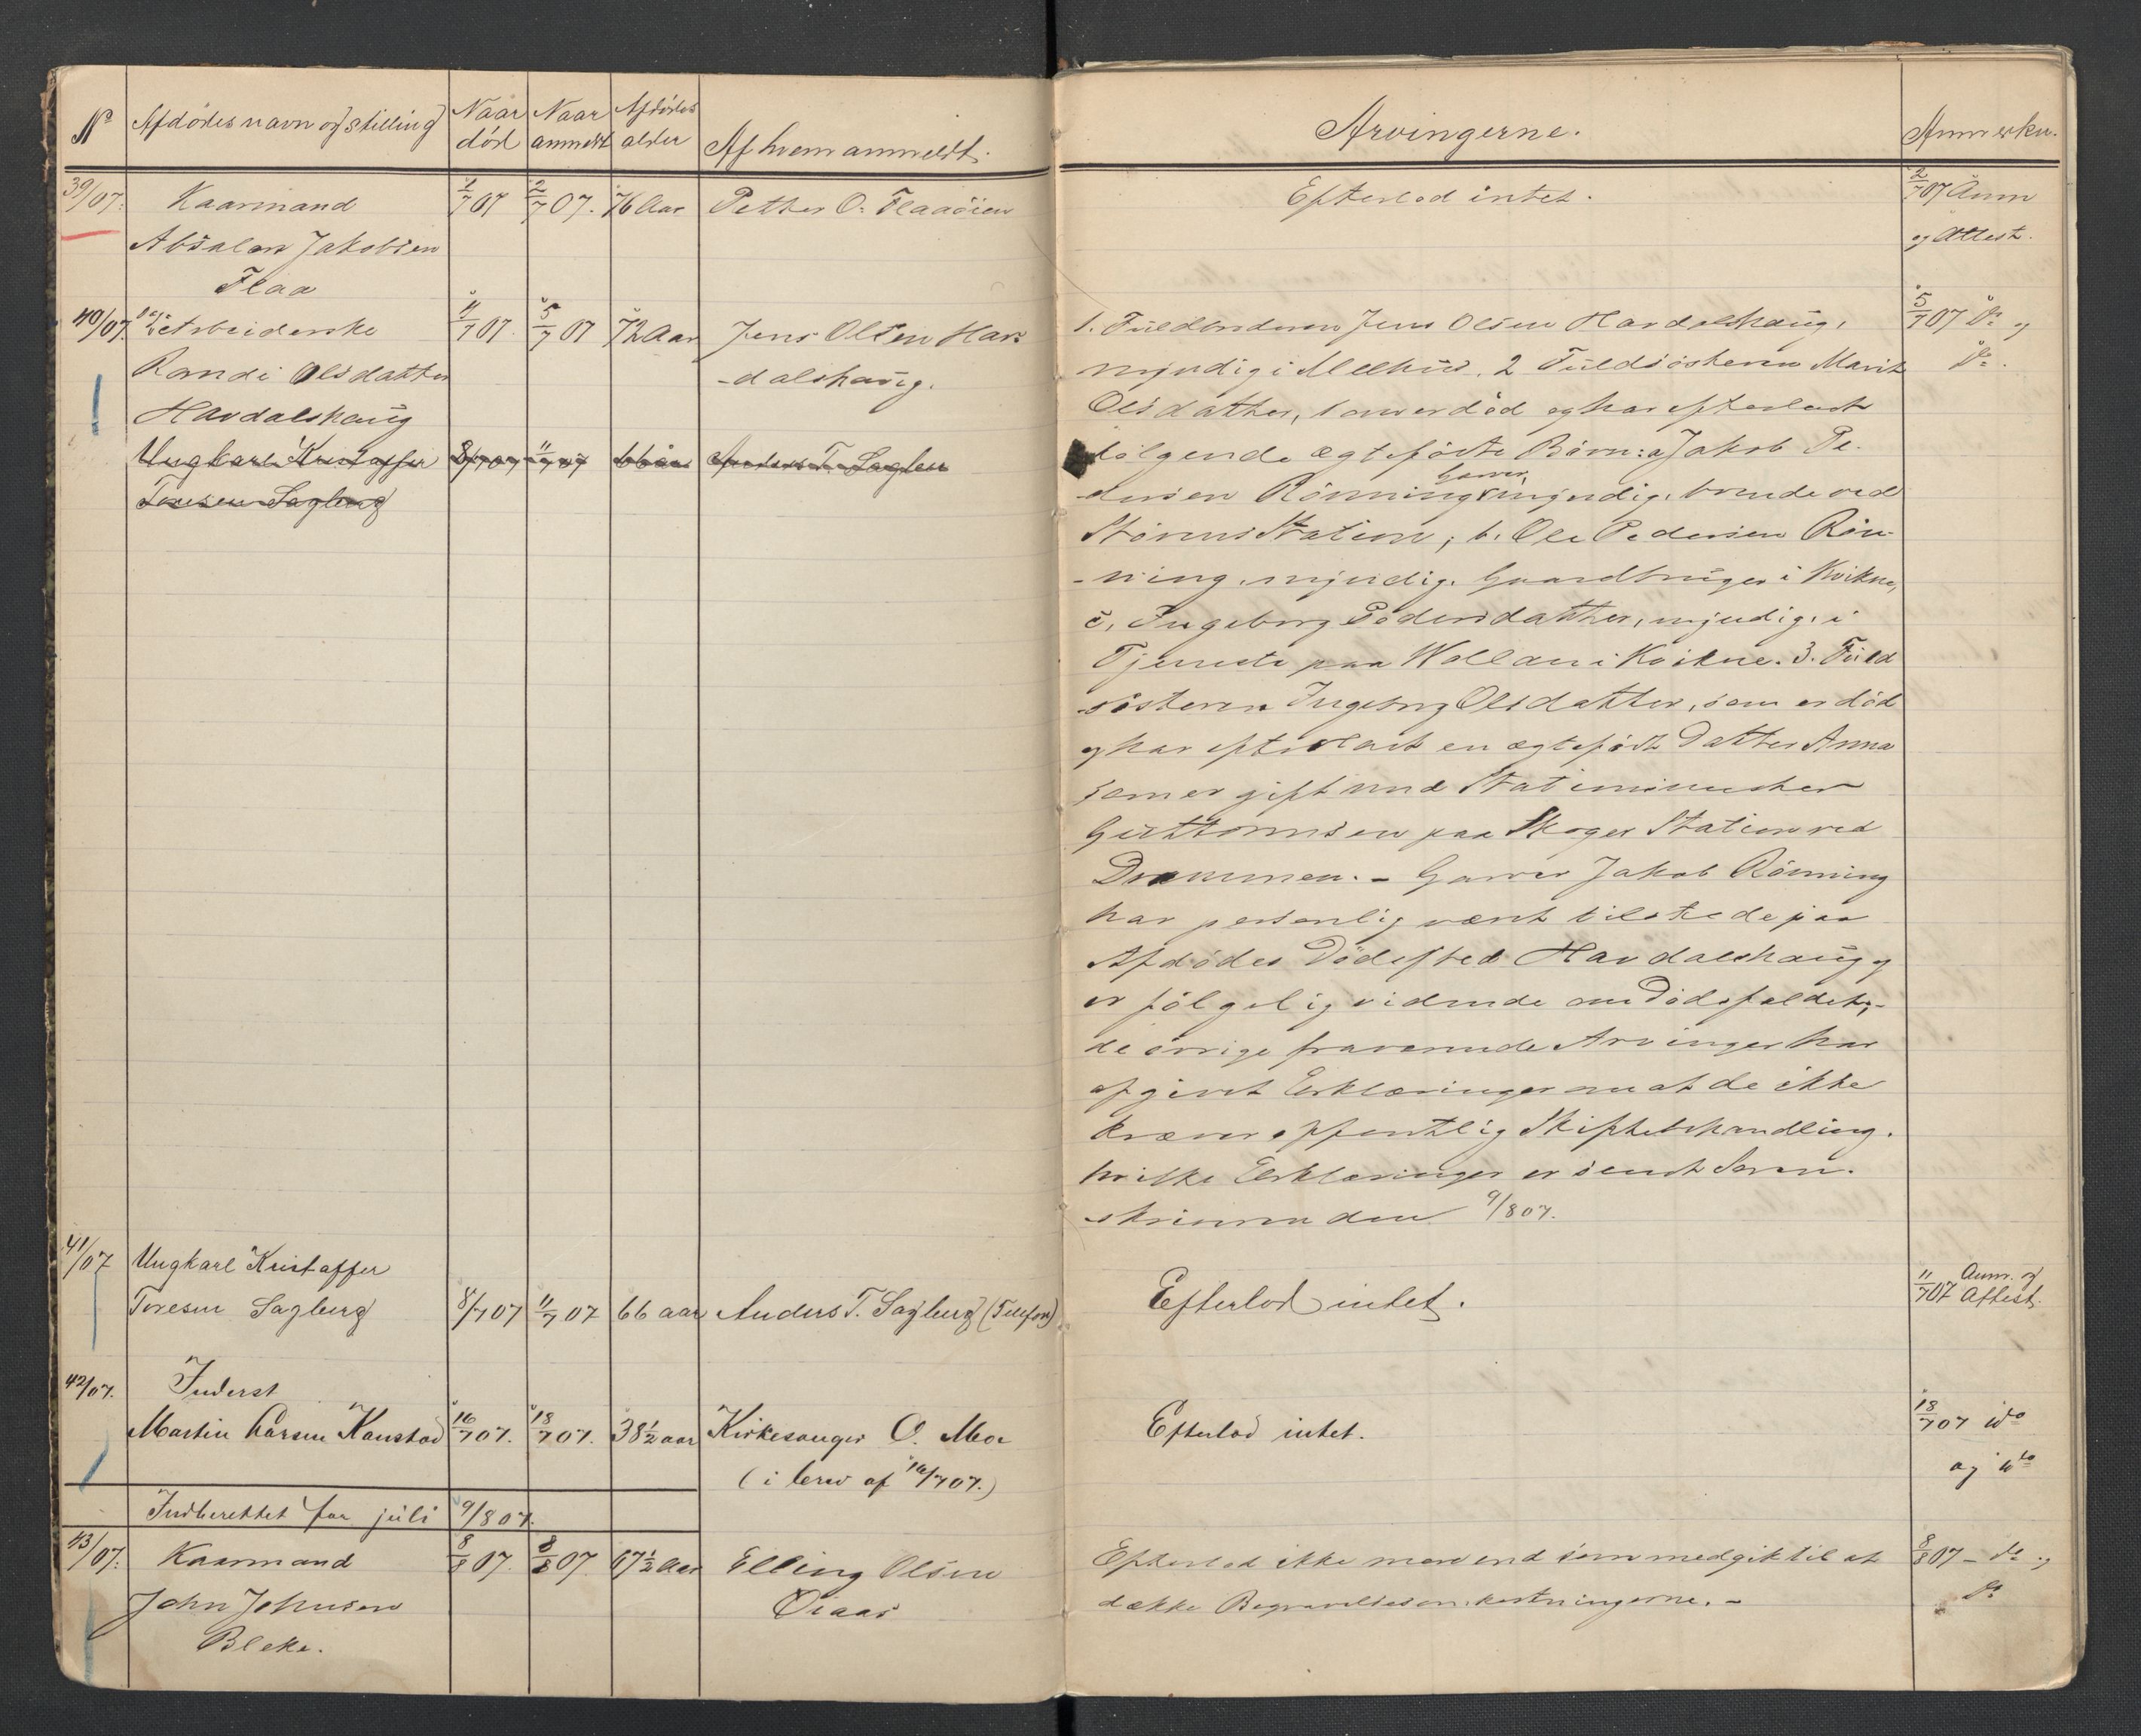 No Afdödes navn og stilling Naar död Naar anmeldt Afdödes alder Af hvem anmeldt.
39/07. Kaarmand 1/7 07 2/7 07. 76 Aar Petter O. Flaaöien
Absalon Jakobsen
Flaa
40/07. Arbeiderske 4/7 07. 5/7 07 72 Aar Jens Olsen Hav-
Randi Olsdatter -dalshaug.
Havdalshaug
Ungkarl Kristoffer 8/7 07 11/7 07 66 aar Anders T. Sagberg
Toresen Sagberg
41/07 Ungkarl Kristoffer
Toresen Sagberg 8/7 07 11/7 07 66 aar Anders T. Sagberg (Telefon)
42/07. Inderst
Martin Larsen Kanstad 16/7 07. 18/7 07. 38 1/2 aar Kirkesanger O. Moe
(i brev af 16/7 07.)
Indberettet for juli 9/8 07.
43/07. Kaarmand 8/8 07. 8/8 07. 67 1/2 Aar Elling Olsen
John Johnsen Öiaas
Bleke.
Arvingerne. Anmerkn.
Efterlod intet. 2/7 07 Anm
og Attest.
1. Fuldbroderen Jens Olsen Havdalshaug, 5/7 07 Do og
myndig i Melhus, 2 Fuldsösteren Marit Do.
Olsdatter, som er död og har efterladt
fölgende ægtefödte Börn: a, Jakob Pe-
dersen Rönning, Garver, myndig, boende ved
Störens Station, b. Ole Pedersen Rön-
-ning, myndig, Gaardbruger i Kvikne,
c, Ingeborg Pedersdatter, myndig, i
Tjeneste paa Wollan i Kvikne. 3. Fuld
sösteren Ingeborg Olsdatter, som er död
og har efterladt en ægtefödt Datter Anna
som er gift med Stationsmester
Guttormsen paa Skoger Station ved
Drammen. - Garver Jakob Rönning
har personlig vært tilstede paa
Afdödes Dödssted Havdalshaug og
er fölgelig vidende om Dödsfaldet, -
de övrige fraværende Arvinger har
afgivet Erklæringer om at de ikke
kræver offentlig Skiftebehandling,
hvilke Erklæringer er sendt Soren-
skriveren den 9/8 07.
Efterlod intet. 11/7 07 Anm. og Attest.
Efterlod intet. 18/7 07 ido
og ido
Efterlod ikke mere end som medgik til at 8/8 07 - do og
dække Begravelsesomkostningerne. - do